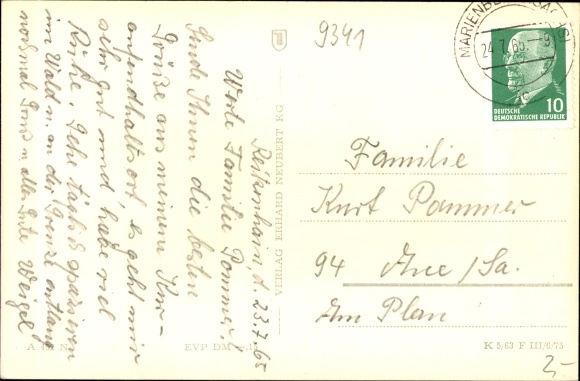 9341
MARIENBE
24.7.65.-9
10
DEUTSCHE
DEMOKRATISCHE REPUBLIK
Reitzenhain, d. 23.7.65
Werte Familie Pommer,
Sende Ihnen die besten
Grüße aus meinem Kur-
aufendhaltsort es geht mir
sehr gut und, habe viel
Ruhe. Gehe täglich spazieren
im Wald u. an der Grenze entlang
nochmal Gruß u. alles Gute Weigel
VERLAG ERHARD NEUBERT KG
Familie
Kurt Pommer
94 Aue/Sa.
Am Plan
EVP DM
K 5,63 F III/6/75
2,-